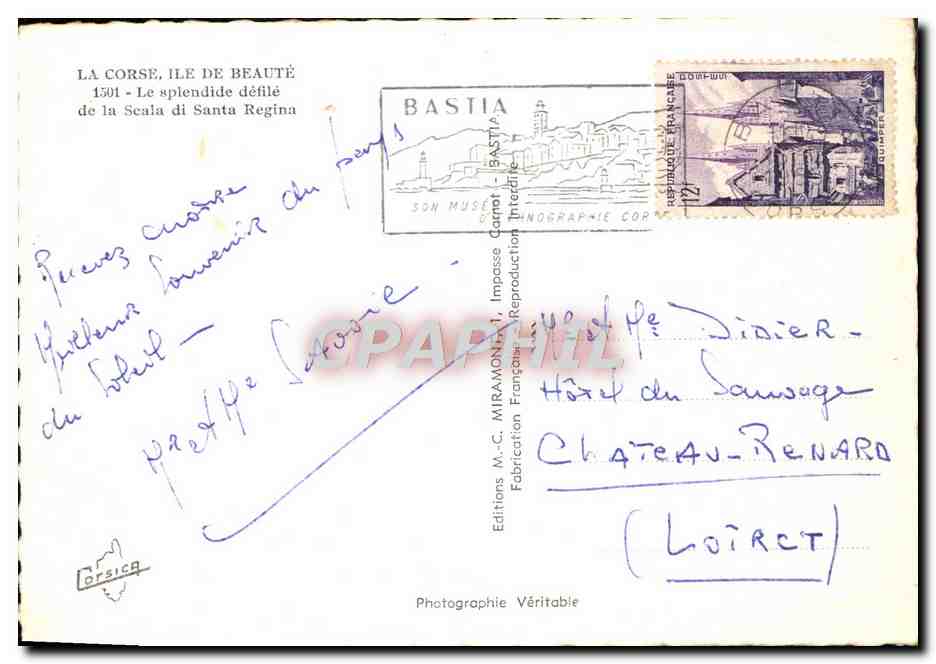 LA CORSE, ILE DE BEAUTÉ
1501 - Le splendide défilé
de la Scala di Santa Regina
BASTIA
SON MUSÉE
D'ETHNOGRAPHIE COR
REPUBLIQUE FRANÇAISE
POSTES
QUIMPER
12F
Recevez
Meilleurs Souvenirs du pays
du Soleil -
Mr et Me
Mr et Me DIDIER -
Hôtel du Sauvage
CHATEAU-RENARD
(LOIRET)
Editions M.-C. MIRAMONT, 1, Impasse Carnot - BASTIA
Fabrication Française - Reproduction Interdite
CPAPHIL
Corsica
Photographie Véritable